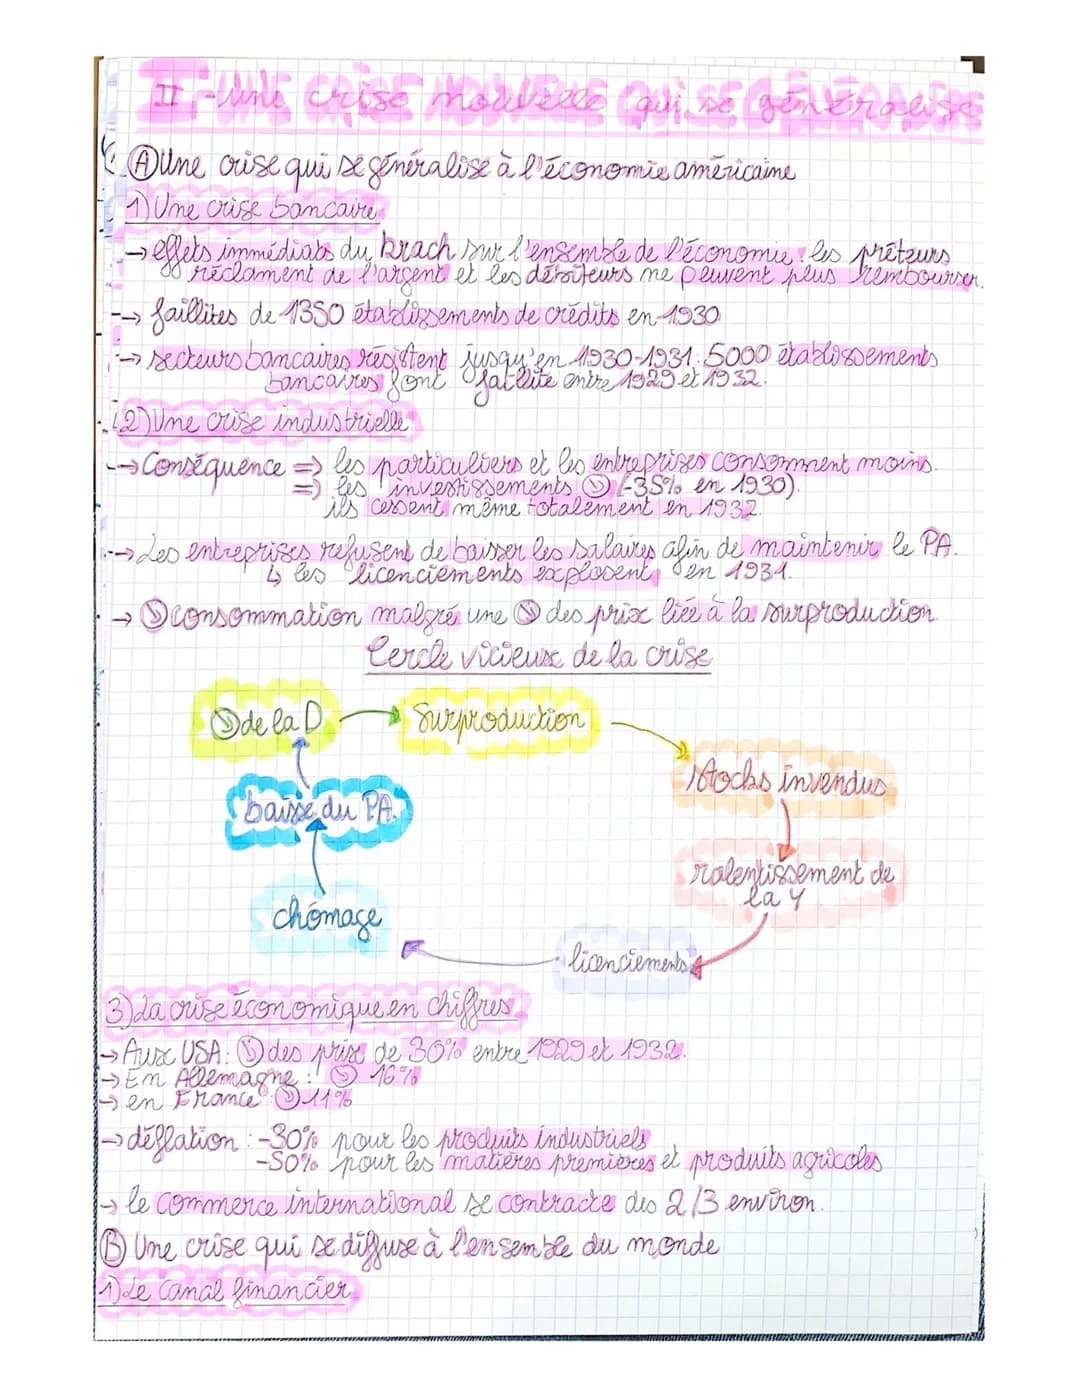 II - une crise nouvelle qui se généralise
A Une crise qui se généralise à l'économie américaine
1) Une crise bancaire
→ effets immédiats du krach sur l'ensemble de l'économie : les prêteurs
réclament de l'argent et les débiteurs ne peuvent plus rembourser.
→ faillites de 1350 établissements de crédits en 1930
→ secteurs bancaires résistent jusqu'en 1930-1931 : 5000 établissements
bancaires font faillite entre 1929 et 1932.
2) Une crise industrielle
→ Conséquence => les particuliers et les entreprises consomment moins.
=> les investissements ↘ (-35% en 1930).
ils cessent même totalement en 1932.
→ Les entreprises refusent de baisser les salaires afin de maintenir le PA.
↳ les licenciements explosent en 1931.
→ ↘ consommation malgré une ↘ des prix liée à la surproduction.
Cercle vicieux de la crise
↘ de la D → Surproduction
stocks invendus
baisse du PA.
ralentissement de
la Y
chômage
licenciements
3) La crise économique en chiffres
→ Aux USA : ↘ des prix de 30% entre 1929 et 1932.
→ En Allemagne : ↘ 16%
→ en France : ↘ 11%
→ déflation : -30% pour les produits industriels
-50% pour les matières premières et produits agricoles
→ le commerce international se contracte des 2/3 environ.
B Une crise qui se diffuse à l'ensemble du monde
1) Le canal financier